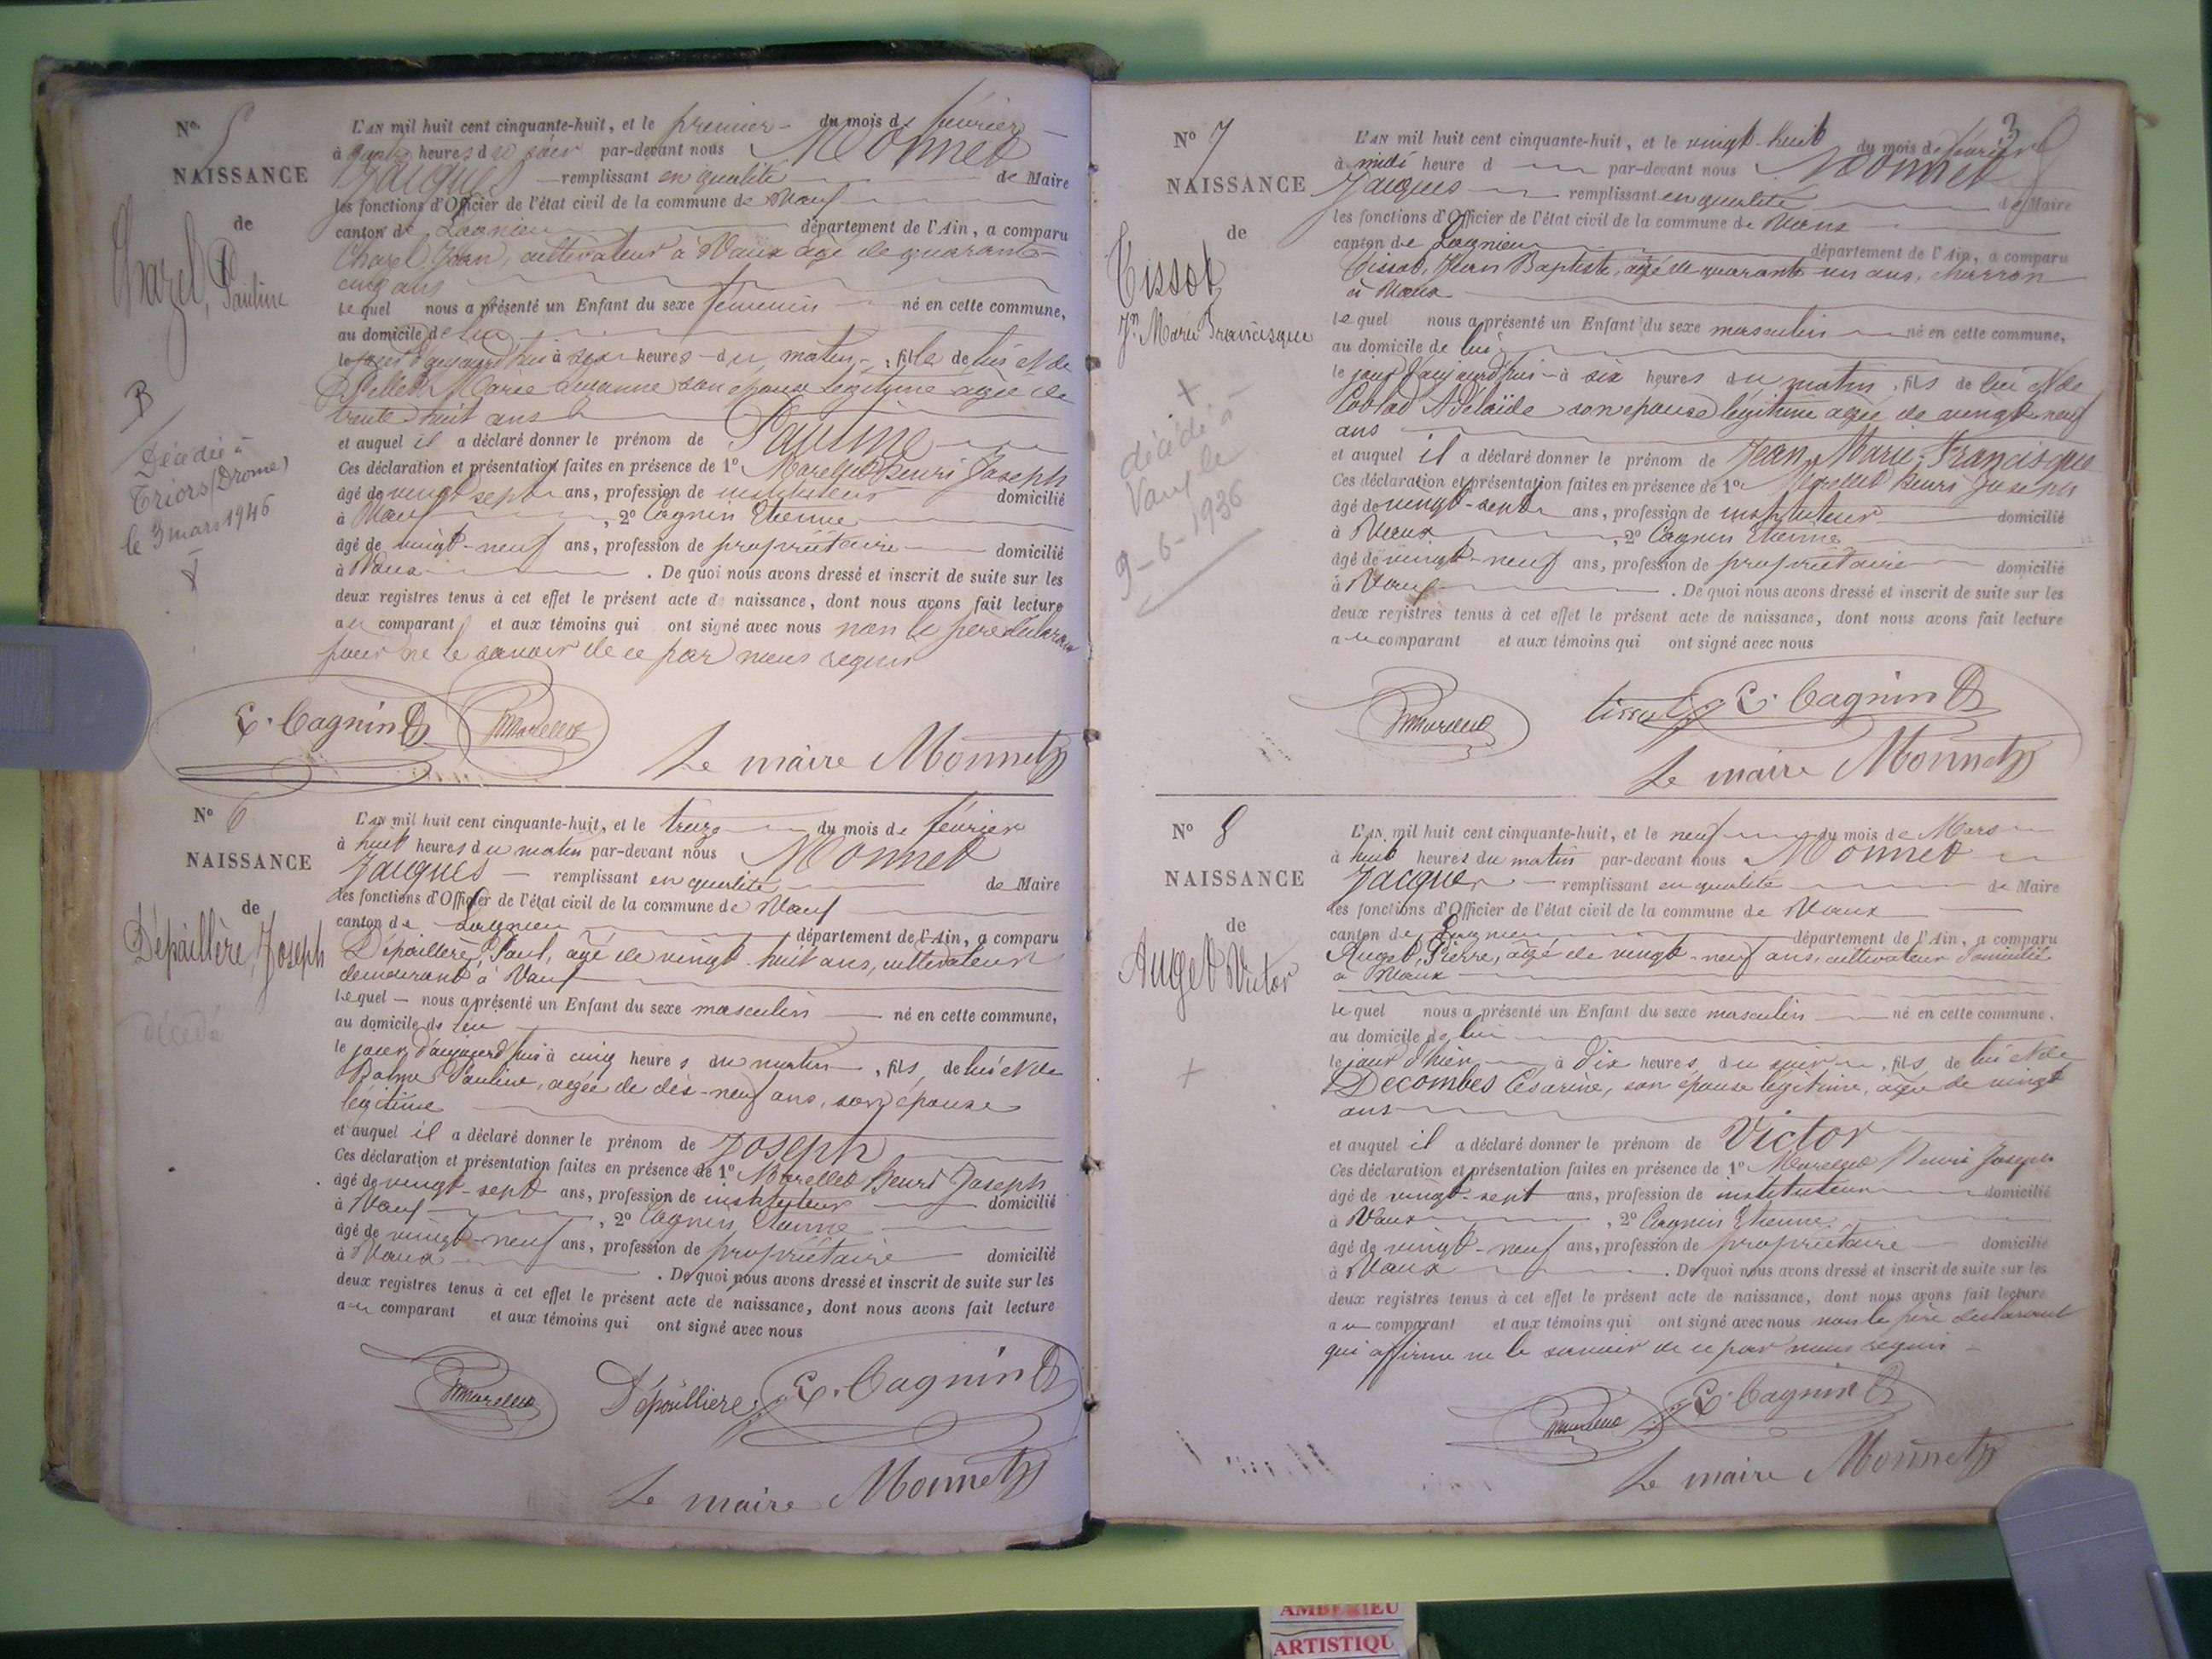 No. 5
NAISSANCE
de
Chazel, Pauline
B
Décédée à
Triors (Drome)
le 3 mars 1946
L'AN mil huit cent cinquante-huit, et le premier du mois de février
à quatre heures du soir par-devant nous Monnet
Jacques remplissant en qualité de Maire
les fonctions d'Officier de l'état civil de la commune de Vaux
canton de Lagnieu département de l'Ain, a comparu
Chazel Jean, cultivateur à Vaux âgé de quarante
cinq ans
lequel nous a présenté un Enfant du sexe féminin né en cette commune,
au domicile de lui
le jour d'aujourd'hui à six heures du matin, fille de lui et de
Pellet Marie Suzanne son épouse légitime agée de
trente huit ans
et auquel il a déclaré donner le prénom de Pauline
Ces déclaration et présentation faites en présence de 1o Marellet Henri Joseph
âgé de vingt sept ans, profession de instituteur domicilié
à Vaux, 2o Cagnin Etienne
âgé de vingt-neuf ans, profession de propriétaire domicilié
à Vaux. De quoi nous avons dressé et inscrit de suite sur les
deux registres tenus à cet effet le présent acte de naissance, dont nous avons fait lecture
au comparant et aux témoins qui ont signé avec nous non le père déclarant
pour ne le savoir de ce par nous requis
E. Cagnin Marellet
Le maire Monnet
No 6
NAISSANCE
de
Dépaillère, Joseph
décédé
L'AN mil huit cent cinquante-huit, et le treize du mois de février
à huit heures du matin par-devant nous Monnet
Jacques remplissant en qualité de Maire
les fonctions d'Officier de l'état civil de la commune de Vaux
canton de Lagnieu département de l'Ain, a comparu
Dépaillère, Paul, agé de vingt-huit ans, cultivateur
demeurant à Vaux
lequel nous a présenté un Enfant du sexe masculin né en cette commune,
au domicile de lui
le jour d'aujourd'hui à cinq heures du matin, fils de lui et de
Pauline, agée de dès-neuf ans, son épouse
légitime
et auquel il a déclaré donner le prénom de Joseph
Ces déclaration et présentation faites en présence de 1o Marellet Henri Joseph
âgé de vingt-sept ans, profession de instituteur domicilié
à Vaux, 2o Cagnin Etienne
âgé de vingt-neuf ans, profession de propriétaire domicilié
à Vaux. De quoi nous avons dressé et inscrit de suite sur les
deux registres tenus à cet effet le présent acte de naissance, dont nous avons fait lecture
au comparant et aux témoins qui ont signé avec nous
Marellet Dépaillière E. Cagnin
Le maire Monnet
3
No 7
NAISSANCE
de
Tissot
Jn Marie Francisque
+
décédé à
Vaux le
9-6-1936
L'AN mil huit cent cinquante-huit, et le vingt-huit du mois de février
à midi heure d par-devant nous Monnet
Jacques remplissant en qualité de Maire
les fonctions d'Officier de l'état civil de la commune de Vaux
canton de Lagnieu département de l'Ain, a comparu
Tissot, Jean Baptiste, agé de quarante un ans, charron
à Vaux
lequel nous a présenté un Enfant du sexe masculin né en cette commune,
au domicile de lui
le jour d'aujourd'hui à six heures du matin, fils de lui et de
Adelaïde son épouse légitime agée de vingt-neuf
ans
et auquel il a déclaré donner le prénom de Jean, Marie, Francisque
Ces déclaration et présentation faites en présence de 1o Marellet Henri Joseph
âgé de vingt-sept ans, profession de instituteur domicilié
à Vaux, 2o Cagnin Etienne
âgé de vingt-neuf ans, profession de propriétaire domicilié
à Vaux. De quoi nous avons dressé et inscrit de suite sur les
deux registres tenus à cet effet le présent acte de naissance, dont nous avons fait lecture
au comparant et aux témoins qui ont signé avec nous
Marellet tissot E. Cagnin
Le maire Monnet
No 8
NAISSANCE
de
Auget Victor
+
L'AN mil huit cent cinquante-huit, et le neuf du mois de Mars
à huit heures du matin par-devant nous Monnet
Jacques remplissant en qualité de Maire
les fonctions d'Officier de l'état civil de la commune de Vaux
canton de Lagnieu département de l'Ain, a comparu
Auget, Pierre, agé de vingt-neuf ans, cultivateur domicilié
à Vaux
lequel nous a présenté un Enfant du sexe masculin né en cette commune,
au domicile de lui
le jour d'hier à dix heures du soir, fils de lui et de
Decombes Césarine, son épouse légitime, agée de vingt
ans
et auquel il a déclaré donner le prénom de Victor
Ces déclaration et présentation faites en présence de 1o Marellet Henri Joseph
âgé de vingt-sept ans, profession de instituteur domicilié
à Vaux, 2o Cagnin Etienne
âgé de vingt-neuf ans, profession de propriétaire domicilié
à Vaux. De quoi nous avons dressé et inscrit de suite sur les
deux registres tenus à cet effet le présent acte de naissance, dont nous avons fait lecture
au comparant et aux témoins qui ont signé avec nous non le père déclarant
qui affirme ne le savoir de ce par nous requis
Marellet E. Cagnin
Le maire Monnet
AMBERIEU
ARTISTIQU